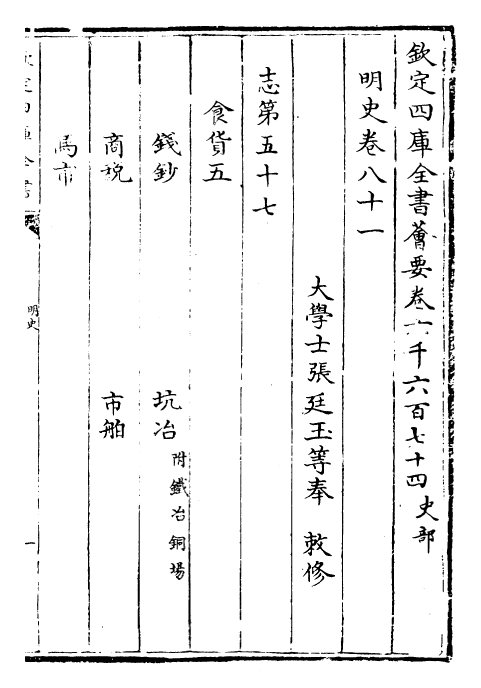 欽定四庫全書薈要卷六千六百七十四 史部
明史卷八十一
大學士張廷玉等奉 敕修
志第五十七
食貨五
錢鈔 坑冶附鐵冶銅場
商稅 市舶
馬市
欽定四庫全書
明史
一